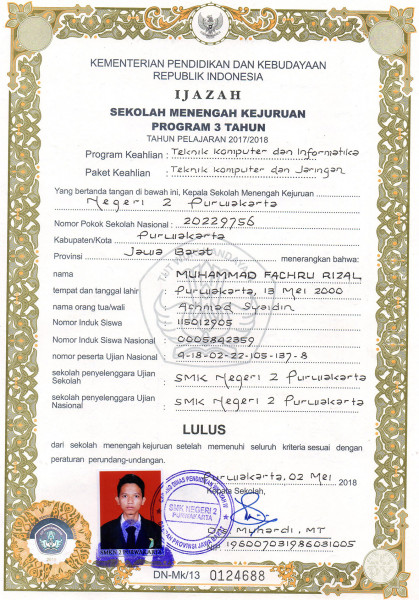 KEMENTERIAN PENDIDIKAN DAN KEBUDAYAAN
REPUBLIK INDONESIA
IJAZAH
SEKOLAH MENENGAH KEJURUAN
PROGRAM 3 TAHUN
TAHUN PELAJARAN 2017/2018
Program Keahlian : Teknik Komputer dan Informatika
Paket Keahlian : Teknik Komputer dan Jaringan
Yang bertanda tangan di bawah ini, Kepala Sekolah Menengah Kejuruan
Negeri 2 Purwakarta
Nomor Pokok Sekolah Nasional : 20229756
Kabupaten/Kota Purwakarta
Provinsi Jawa Barat menerangkan bahwa:
nama MUHAMMAD FACHRU RIZAL
tempat dan tanggal lahir : Purwakarta, 13 Mei 2000
nama orang tua/wali : Achmad Syaidin
Nomor Induk Siswa : 115012905
Nomor Induk Siswa Nasional : 0005842359
nomor peserta Ujian Nasional : 4-18-02-22-105-137-8
sekolah penyelenggara Ujian Sekolah : SMK Negeri 2 Purwakarta
sekolah penyelenggara Ujian Nasional : SMK Negeri 2 Purwakarta
LULUS
dari sekolah menengah kejuruan setelah memenuhi seluruh kriteria sesuai dengan
peraturan perundang-undangan.
Purwakarta, 02 Mei 2018
Kepala Sekolah,
SMK NEGERI 2
PURWAKARTA
Muhardi, MT
196007031986031005
SMKN 2 PURWAKARTA
DN-Mk/13 0124688